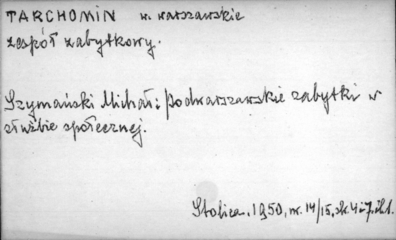 TARCHOMIN w. warszawskie
zespół zabytkowy.
Szymański Michał: Podwarszawskie zabytki w
służbie społecznej.
Stolica. 1950, nr. 14/15, sk. 4 i 7. il. 1.